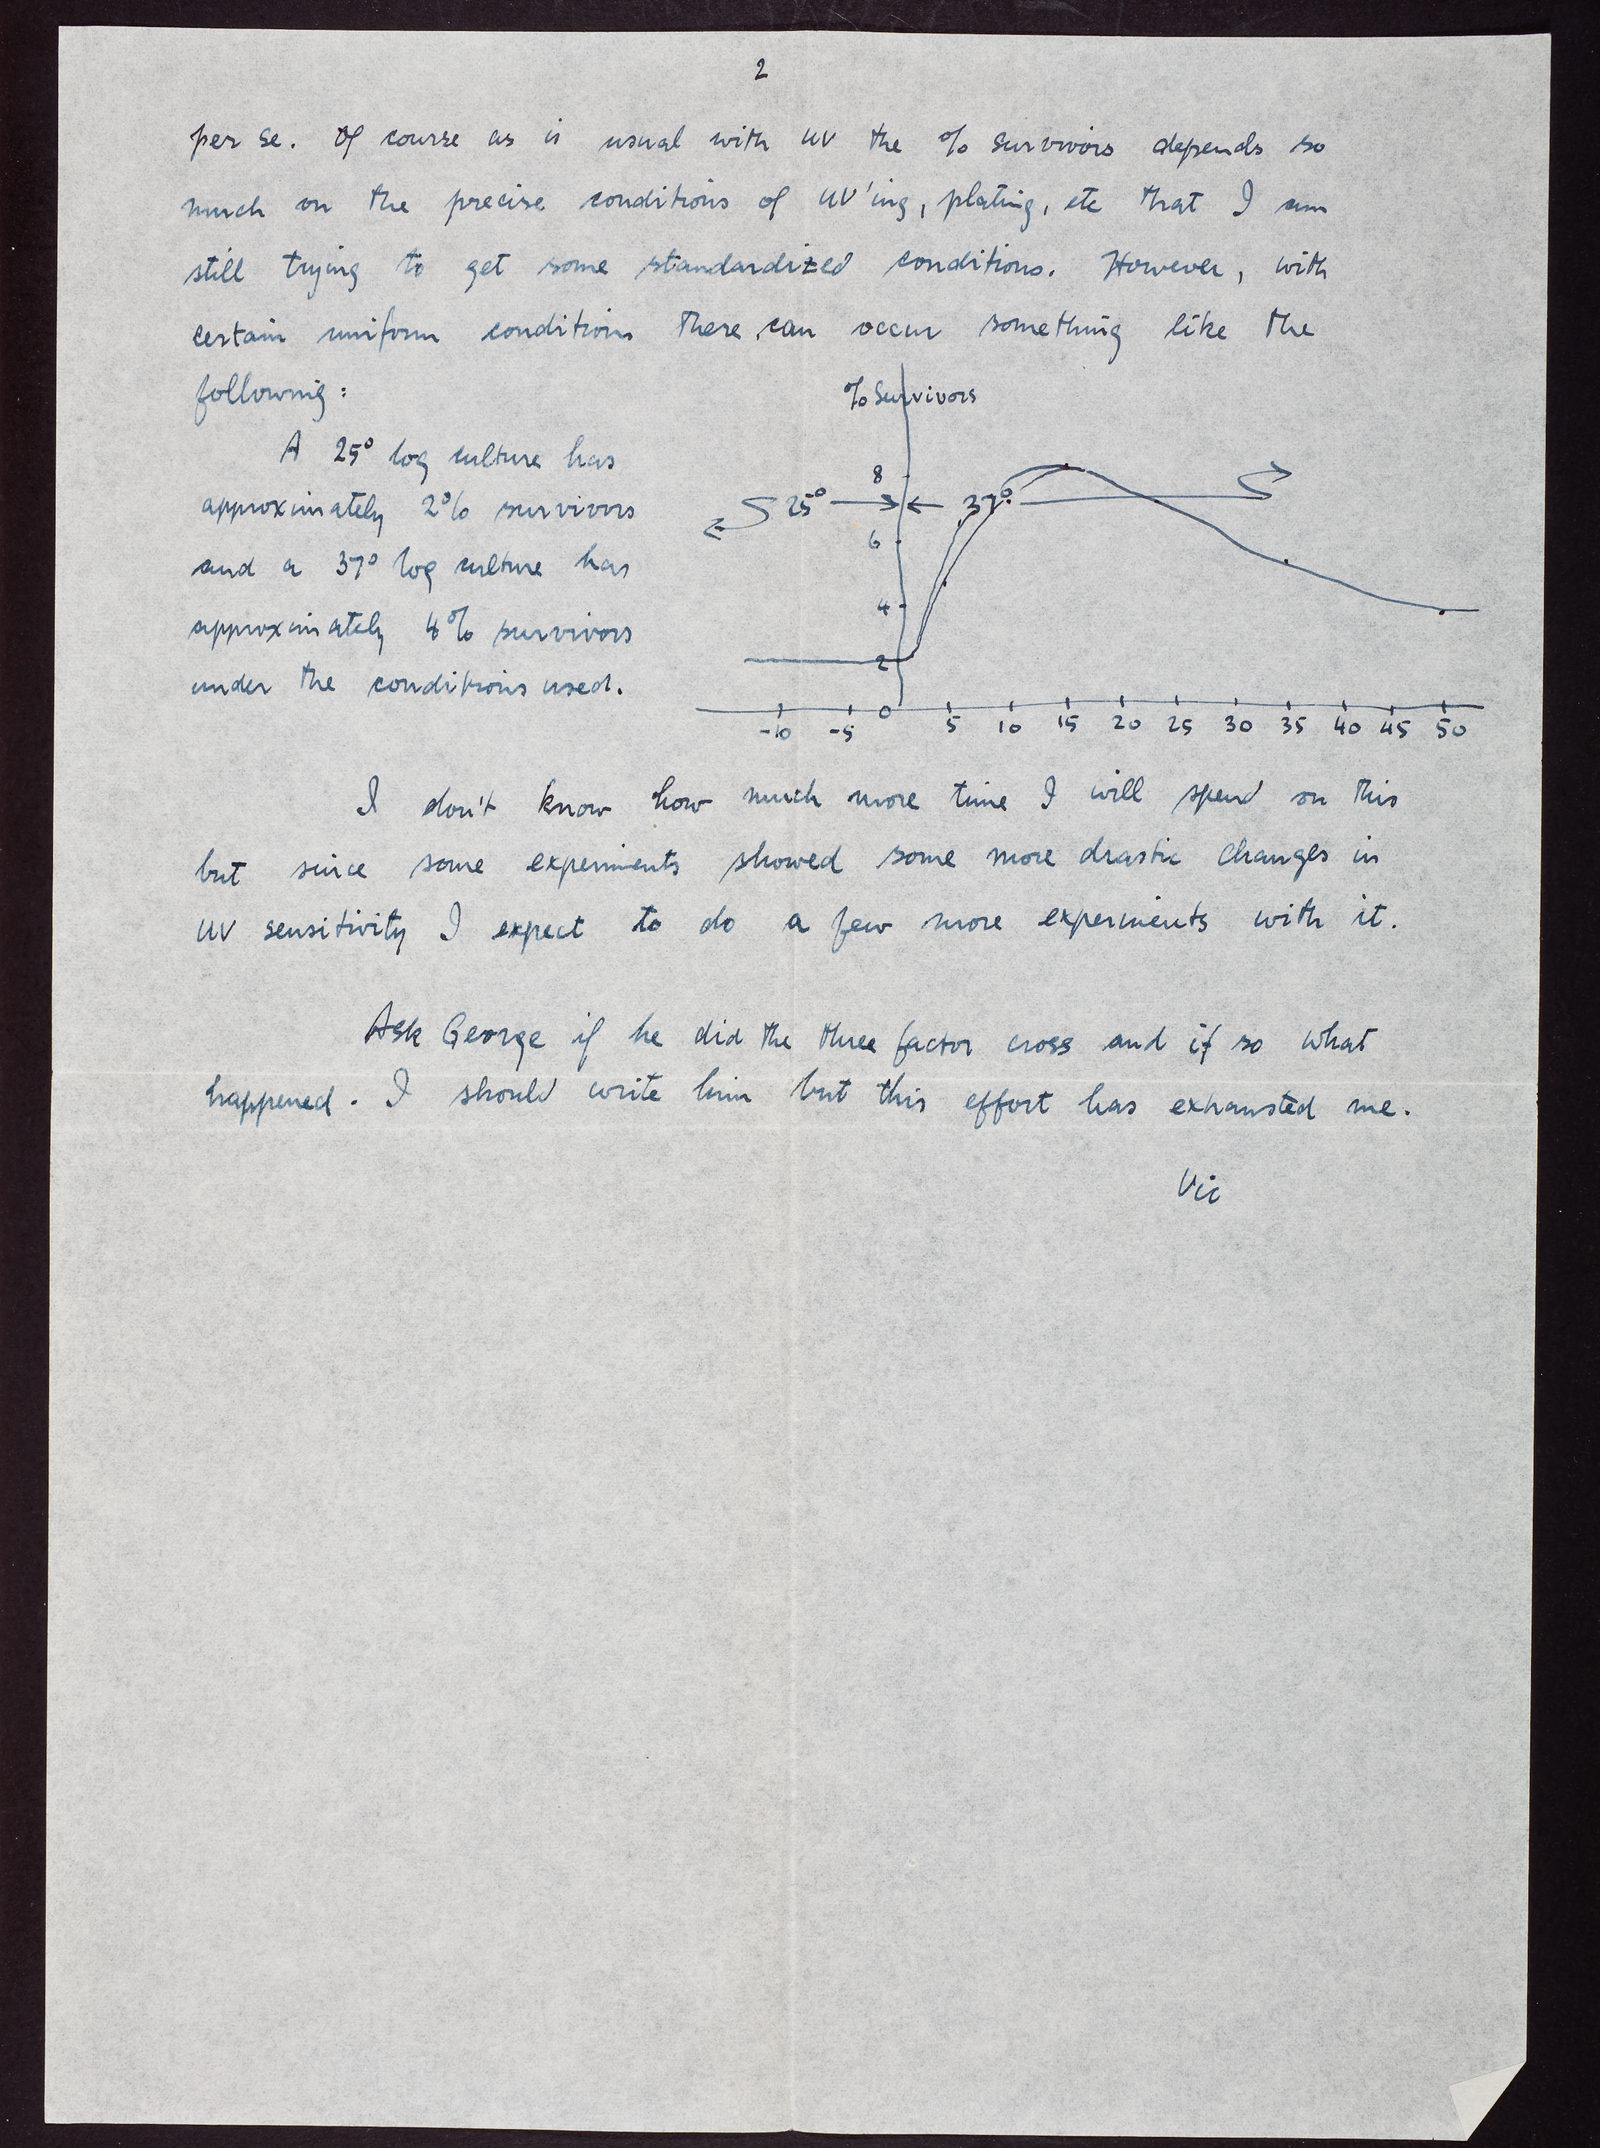 2
per se. Of course as is usual with UV the % survivors depends so
much on the precise conditions of UV'ing, plating, etc that I am
still trying to get some standardized conditions. However, with
certain uniform conditions there can occur something like the
following:
A 25° log culture has
approximately 2% survivors
and a 37° log culture has
approximately 4% survivors
under the conditions used.
% Survivors
8
25° 37°
6
4
2
0
-10 -5 5 10 15 20 25 30 35 40 45 50
I don't know how much more time I will spend on this
but since some experiments showed some more drastic changes in
UV sensitivity I expect to do a few more experiments with it.
Ask George if he did the three factor cross and if so what
happened. I should write him but this effort has exhausted me.
Vic